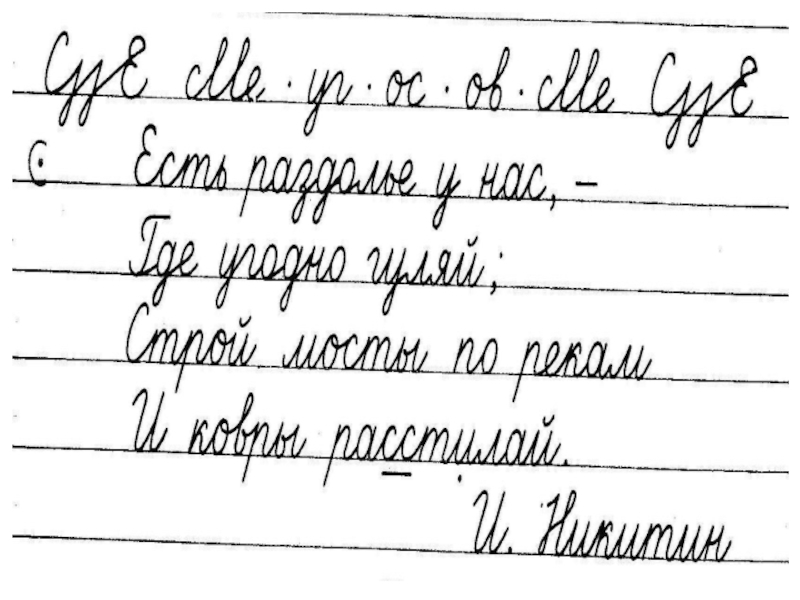 Ме · уг · ос · ов · Ме
Есть раздолье у нас, –
Где угодно гуляй;
Строй мосты по рекам
И ковры расстилай.
И. Никитин